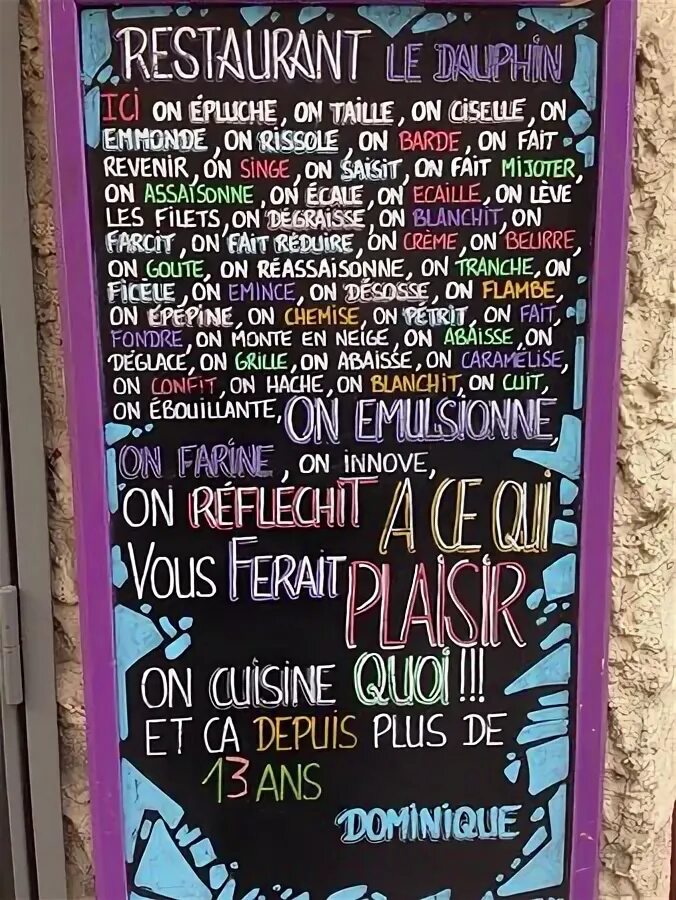 RESTAURANT LE DAUPHIN
ICI ON ÉPLUCHE, ON TAILLE, ON CISELLE, ON
EMMONDE, ON RISSOLE, ON BARDE, ON FAIT
REVENIR, ON SINGE, ON SAISIT, ON FAIT MIJOTER,
ON ASSAISONNE, ON ÉCALE, ON ECAILLE, ON LÈVE
LES FILETS, ON DÉGRAISSE, ON BLANCHIT, ON
FARCIT, ON FAIT RÉDUIRE, ON CRÈME, ON BEURRE,
ON GOUTE, ON RÉASSAISONNE, ON TRANCHE, ON
FICELE, ON EMINCE, ON DÉSOSSE, ON FLAMBE,
ON ÉPÉPINE, ON CHEMISE, ON PÉTRIT, ON FAIT,
FONDRE, ON MONTE EN NEIGE, ON ABAISSE, ON
DÉGLACE, ON GRILLE, ON ABAISSE, ON CARAMÉLISE,
ON CONFIT, ON HACHE, ON BLANCHIT, ON CUIT,
ON ÉBOUILLANTE, ON EMULSIONNE,
ON FARINE, ON INNOVE,
ON RÉFLÉCHIT A CE QUI
VOUS FERAIT PLAISIR
ON CUISINE QUOI!!!
ET CA DEPUIS PLUS DE
13 ANS
DOMINIQUE